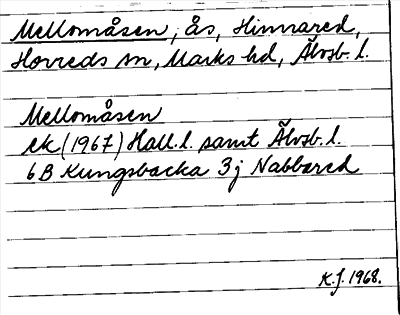 Mellomåsen, ås, Hinnared,
Horreds sn, Marks hd, Älvsb. l.
Mellomåsen
ek (1967) Hall. l. samt Älvsb. l.
6B Kungsbacka 3j Nabbared
K.J. 1968.